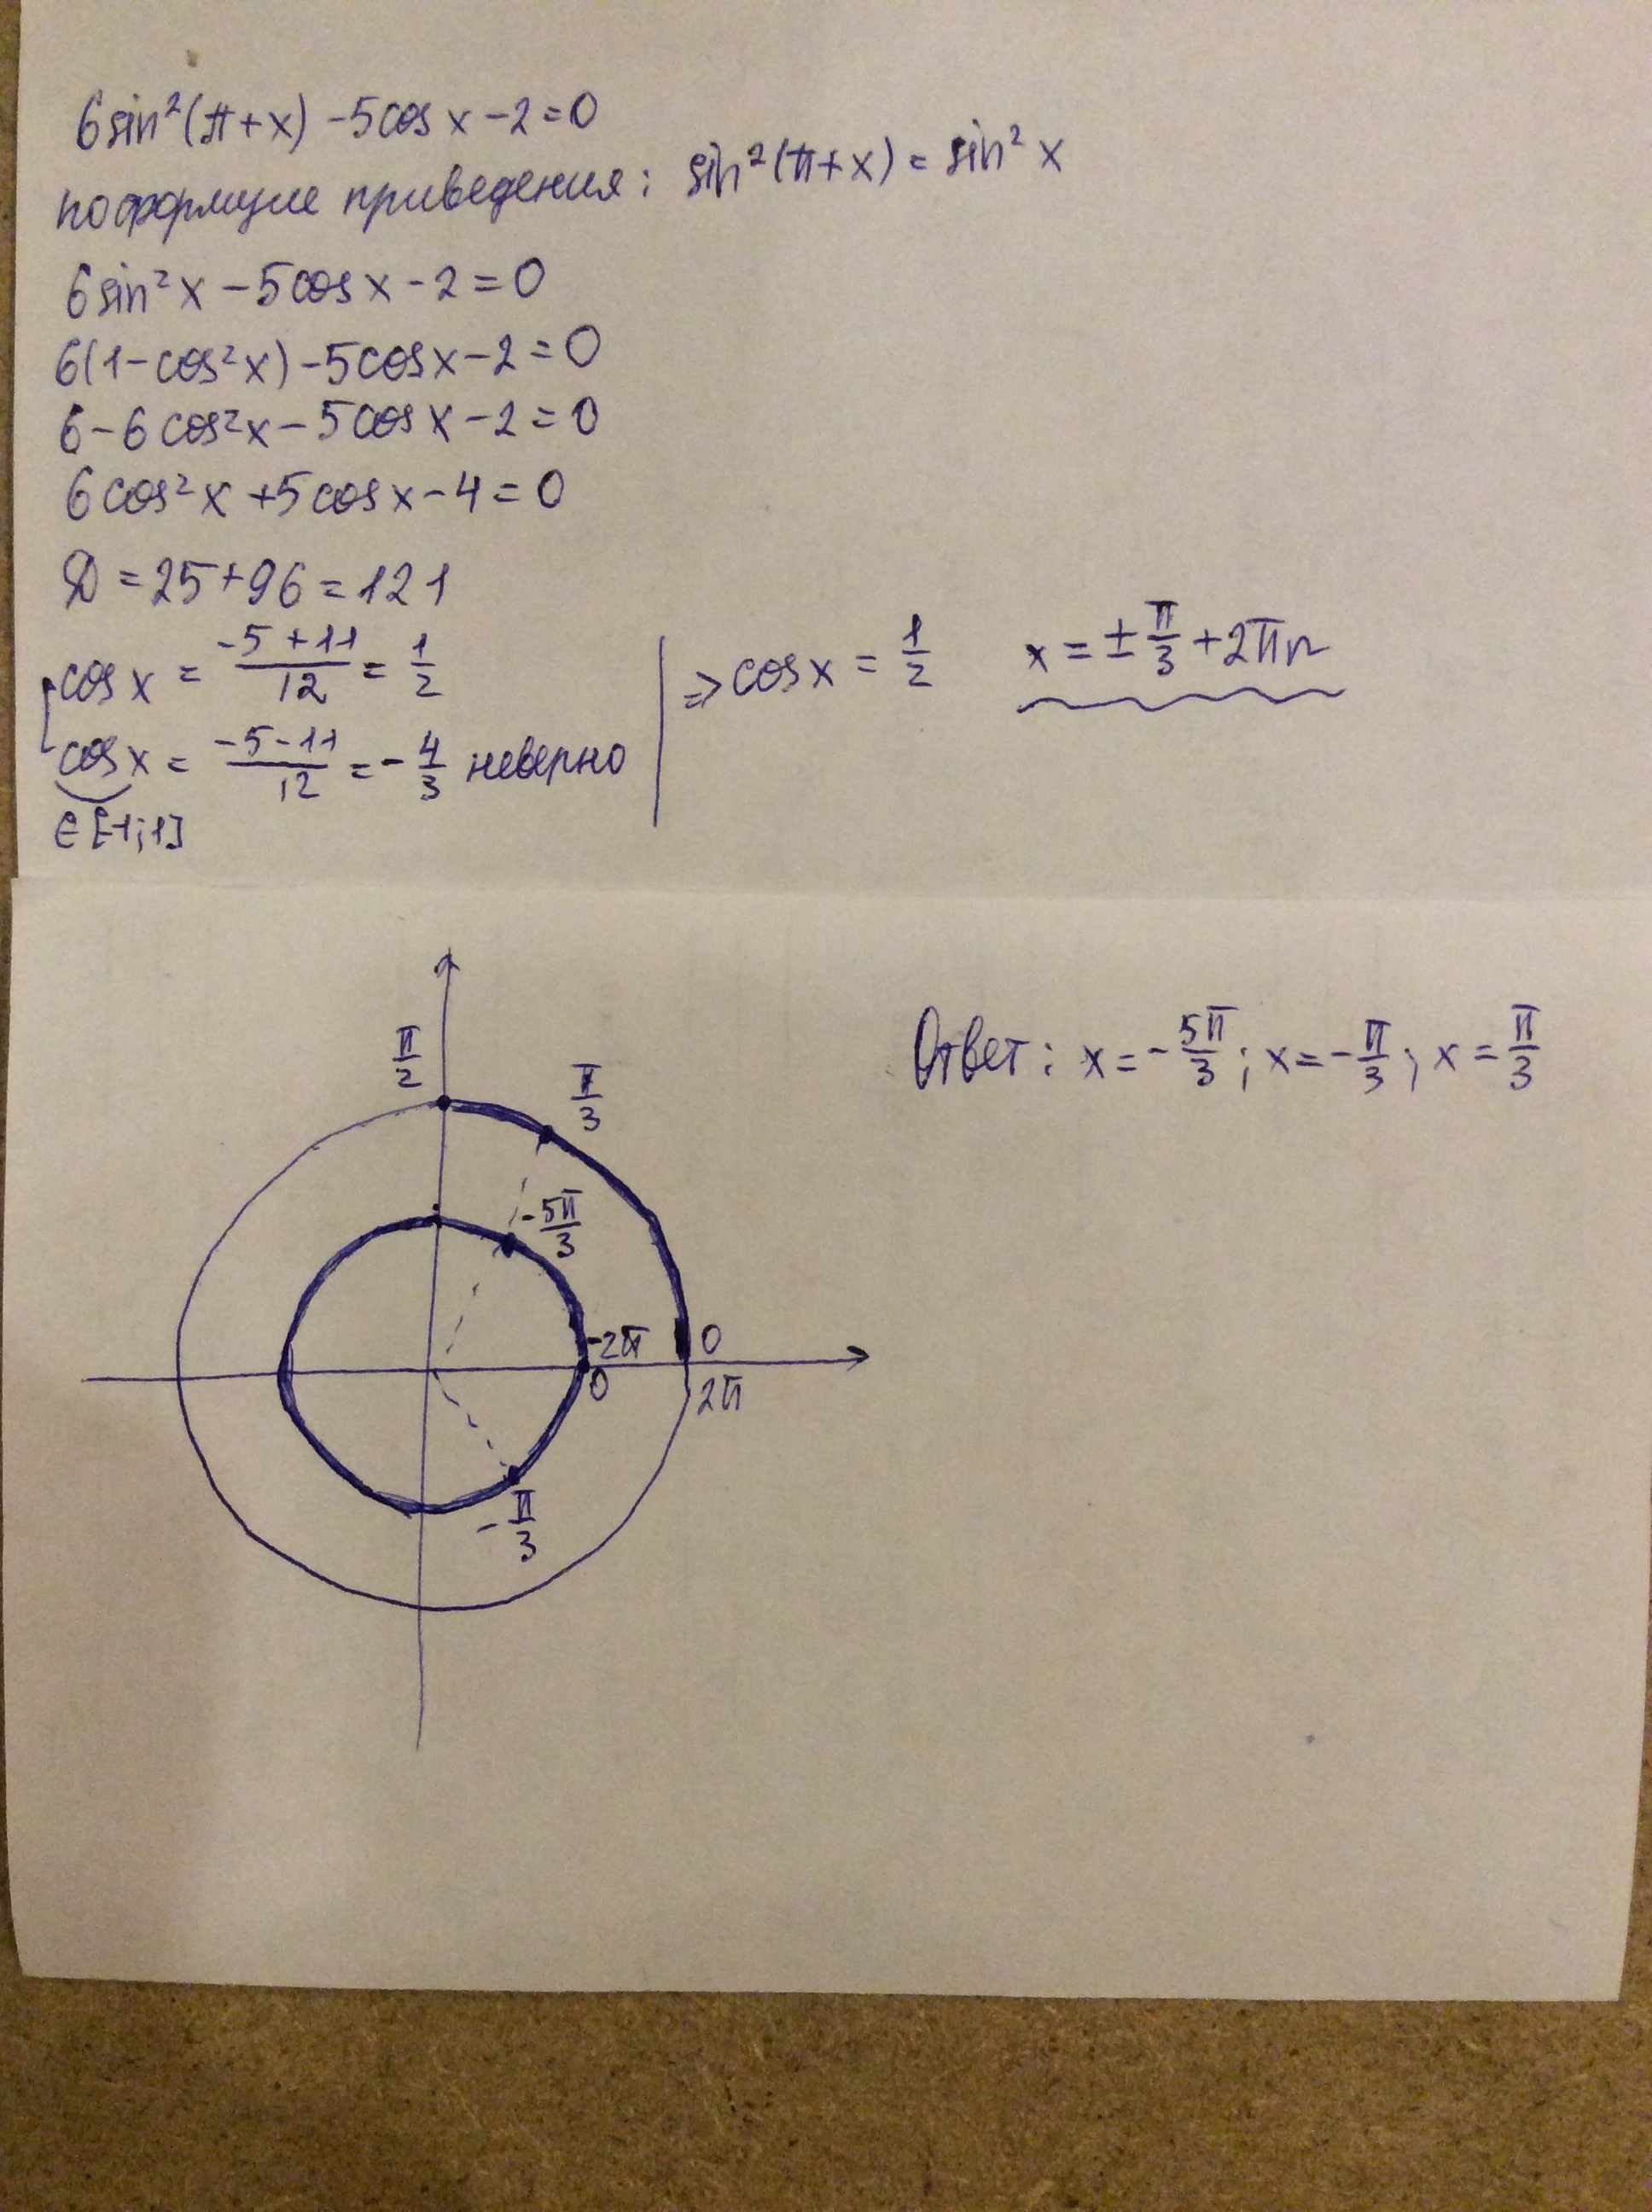 6sin²(π+x) -5cos x -2=0
по формуле приведения: sin²(π+x) = sin² x
6sin² x -5cos x -2=0
6(1-cos²x) -5cosx-2=0
6-6cos²x-5cosx-2=0
6cos²x+5cosx-4=0
D=25+96=121
cos x = (-5+11)/12 = 1/2
cos x = (-5-11)/12 = -4/3 неверно
∈[-1;1]
=> cos x = 1/2 x = ±π/3 + 2πn
Ответ: x=-5π/3; x=-π/3; x=π/3
π/2
π/3
-5π/3
-2π
0
0
2π
-π/3